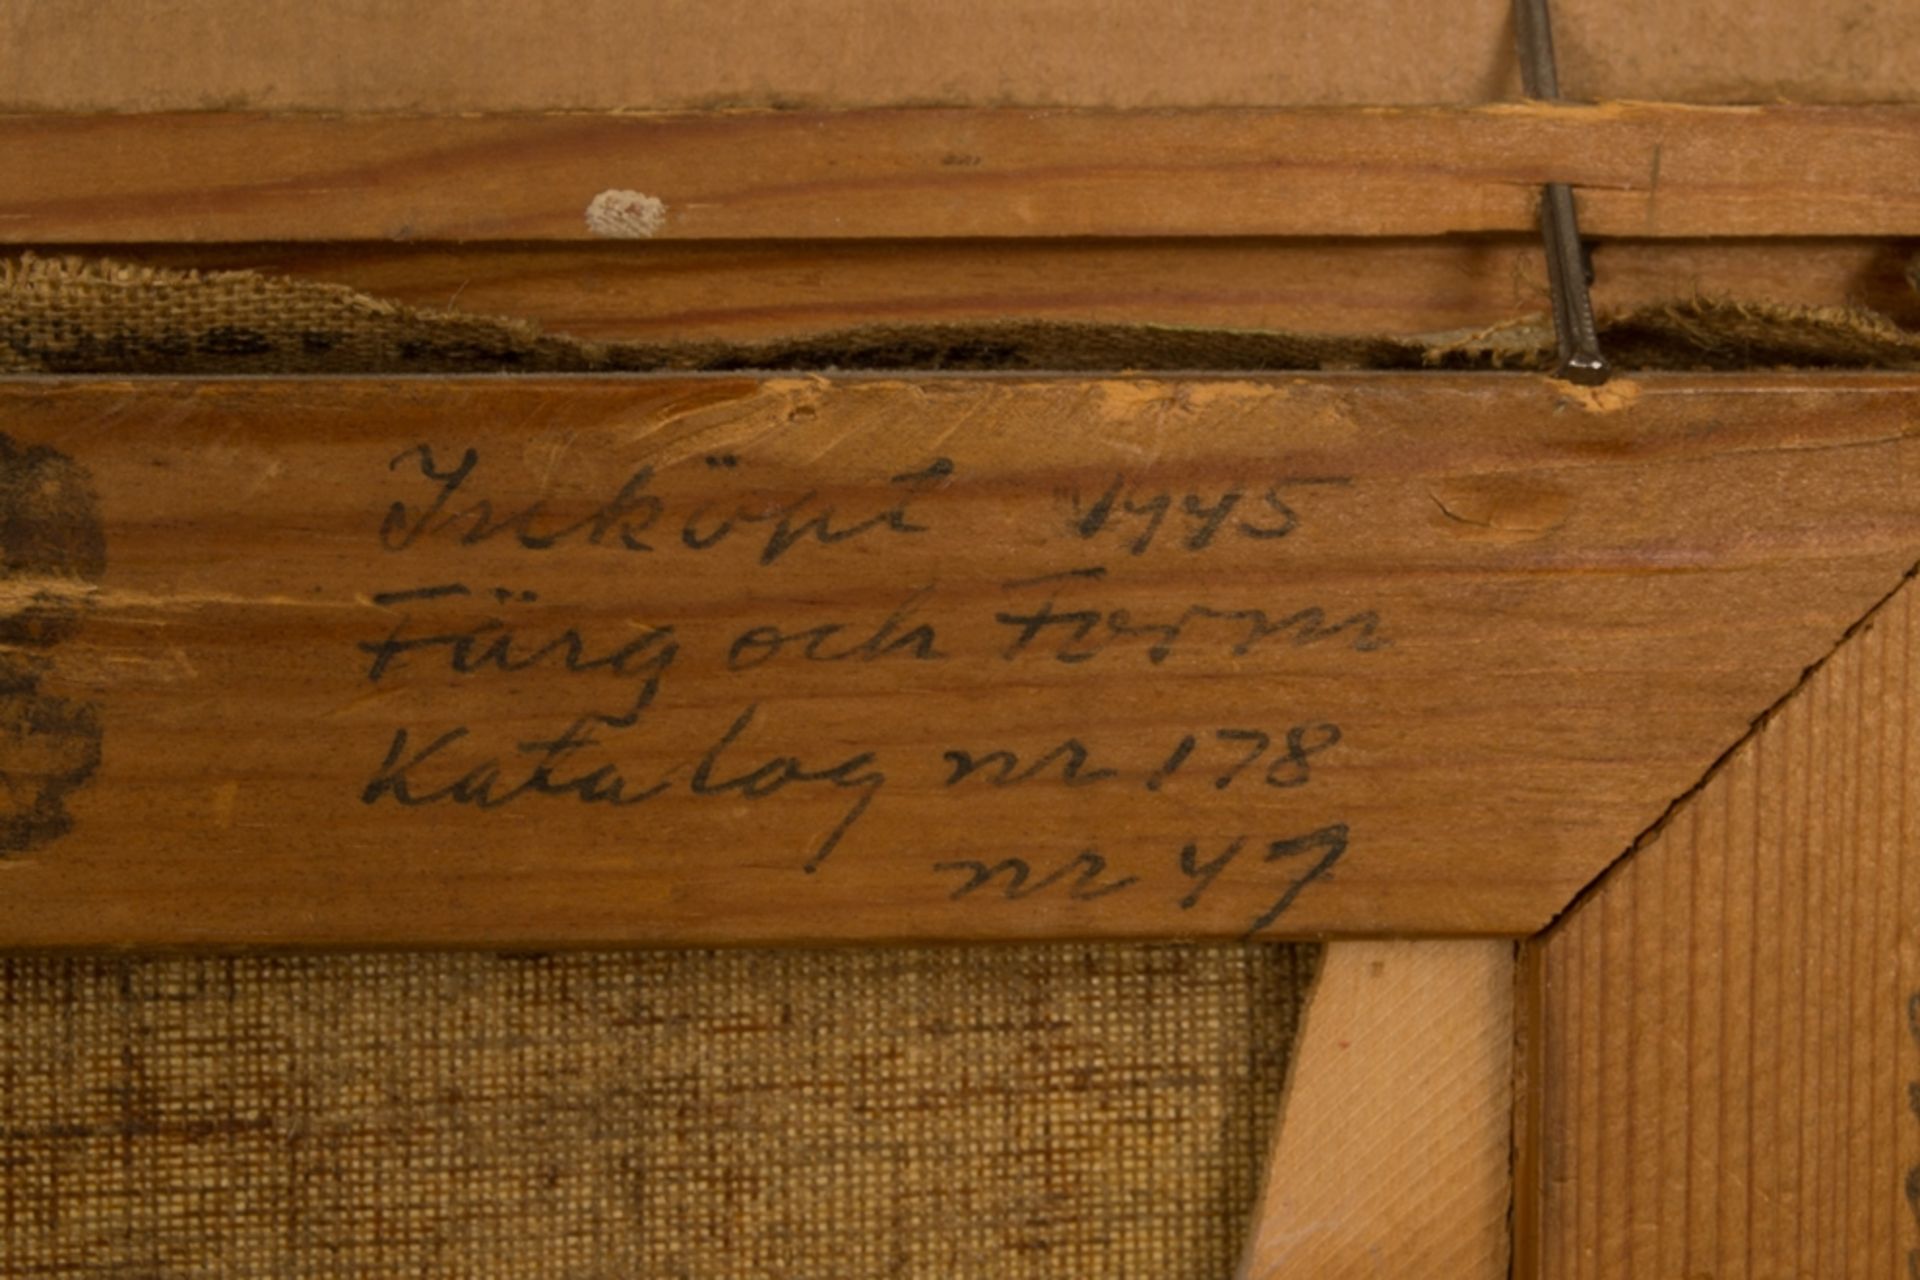 Inköpt 1945
Färg och Form
Katalog nr 178
nr 47